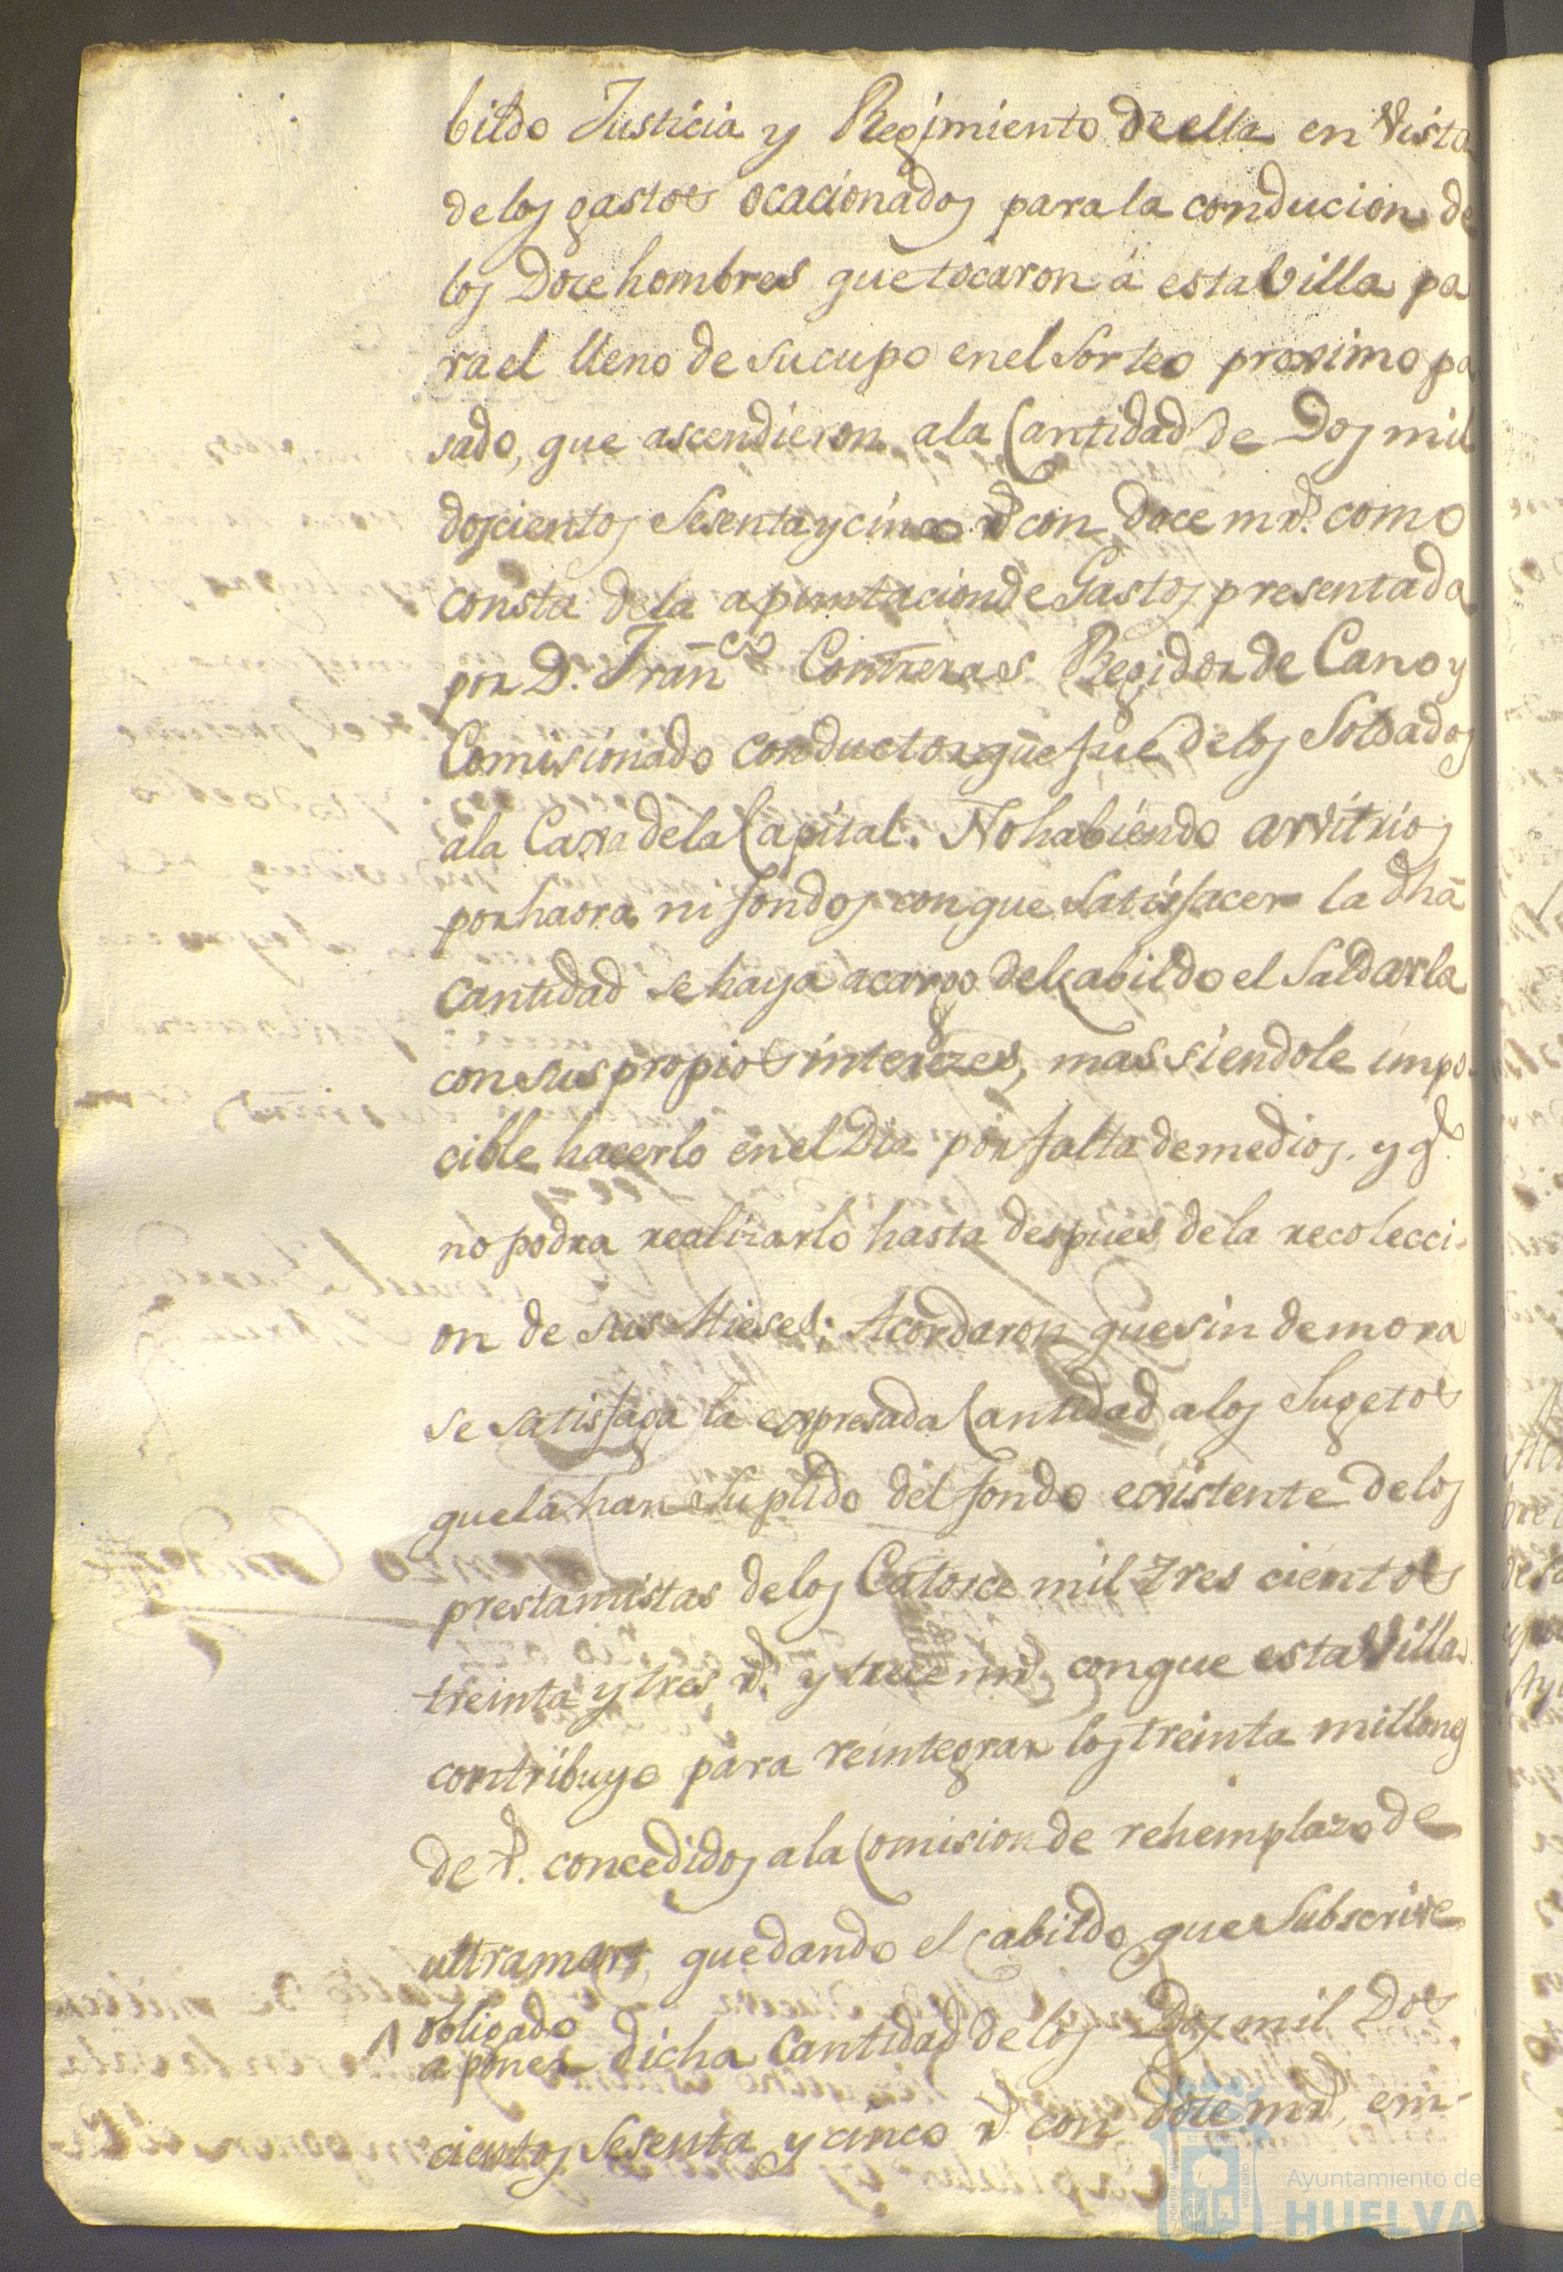 bildo Justicia y Regimiento de ella en Vista
de los gastos ocacionados para la conducion de
los Doce hombres que tocaron á esta Villa pa
ra el lleno de su cupo en el Sorteo proximo pa
sado, que ascendieron a la Cantidad de Dos mil
doscientos Sesenta y cinco rs. con doce mrs. como
consta de la apuntacion de Gastos presentada
por D. Franco Contreras Regidor de Cano y
Comisionado conductor que fue de los Soldados
a la Caxa de la Capital. No habiendo arvitrios
por haora ni fondos con que Satisfacer la dha
Cantidad se haya a cargo del Cabildo el Saldarla
con sus propios interezes, mas siendole impo-
cible hacerlo en el Dia por falta de medios. y q.
no podra realizarlo hasta despues de la recolecci-
on de sus Mieses: Acordaron que sin demora
se satisfaga la expresada Cantidad a los Sugetos
que la han suplido del fondo existente de los
prestamistas de los Catorce mil tres cientos
treinta y tres rs. y trece mrs. con que esta Villa
contribuyo para reintegrar los treinta millones
de rs. concedidos a la Comision de rehemplazo de
ultramar, quedando el Cabildo que Subscrive
obligado
a poner dicha Cantidad de los Dos mil Dos
cientos Sesenta y cinco rs. con doce mrs. em-
Ayuntamiento de
HUELVA